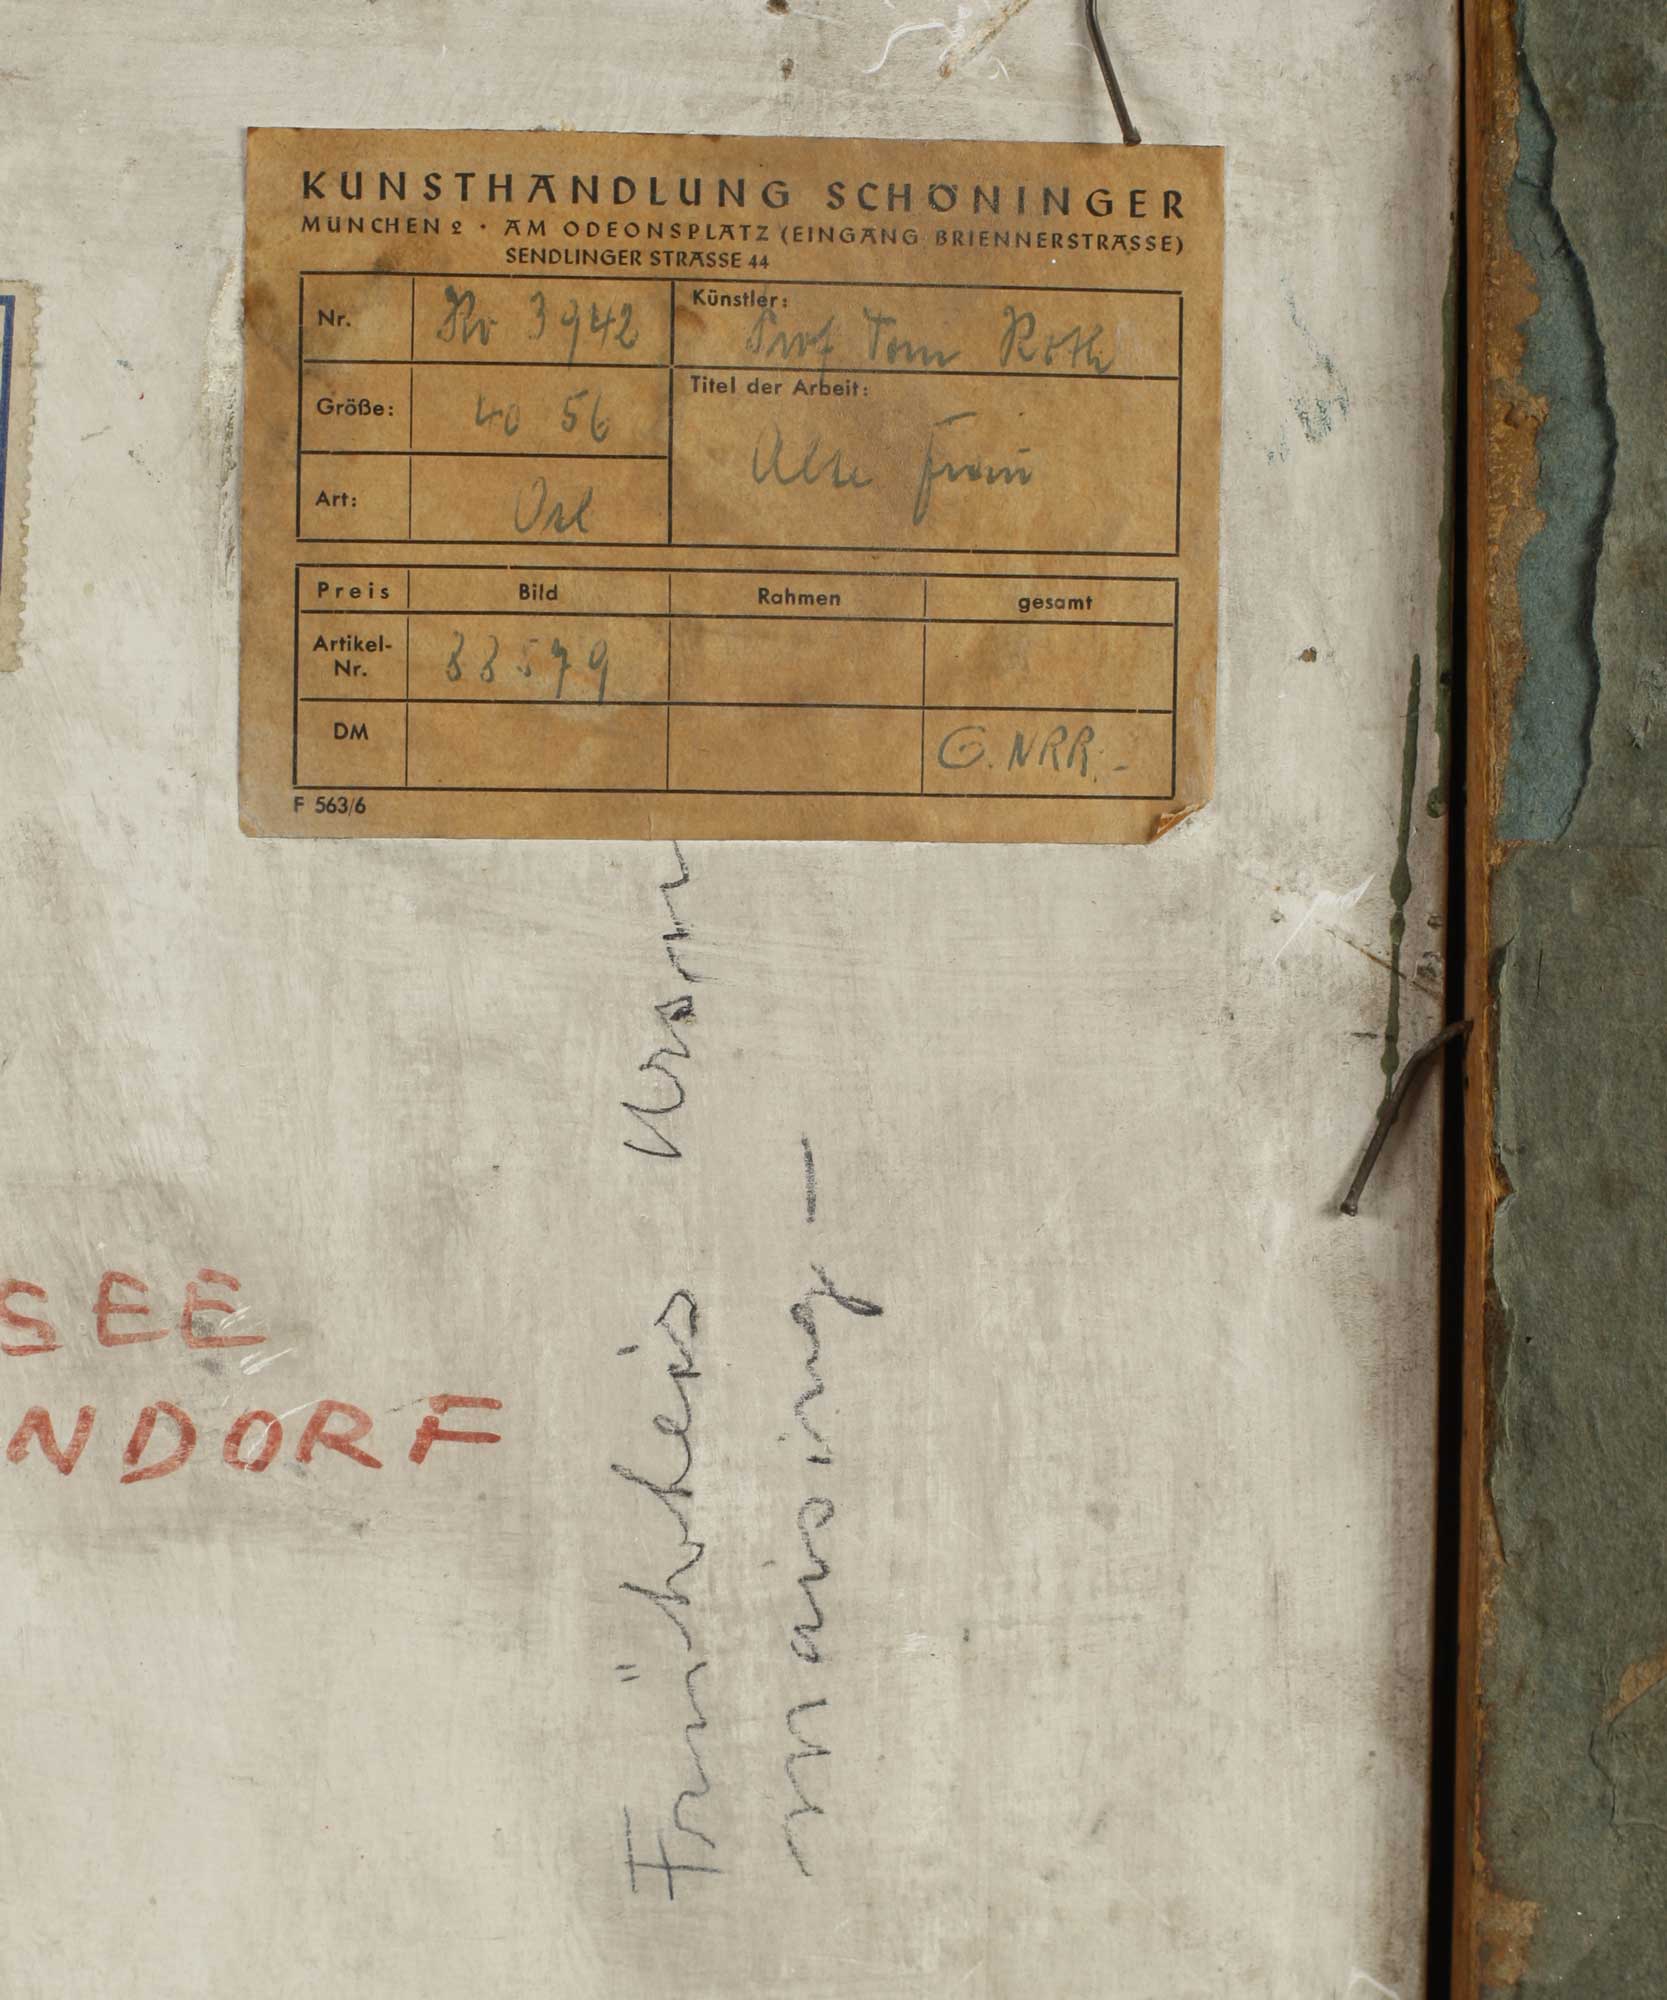 KUNSTHANDLUNG SCHÖNINGER
MÜNCHEN 2 · AM ODEONSPLATZ (EINGANG BRIENNERSTRASSE)
SENDLINGER STRASSE 44
Nr. Kv 3942
Künstler: Prof Toni Roth
Größe: 40 56
Titel der Arbeit: Alte Frau
Art: Oel
Preis Bild Rahmen gesamt
Artikel-
Nr. 33579
DM G.NRR.-
F 563/6
SEE
NDORF
Frühheis
maising –